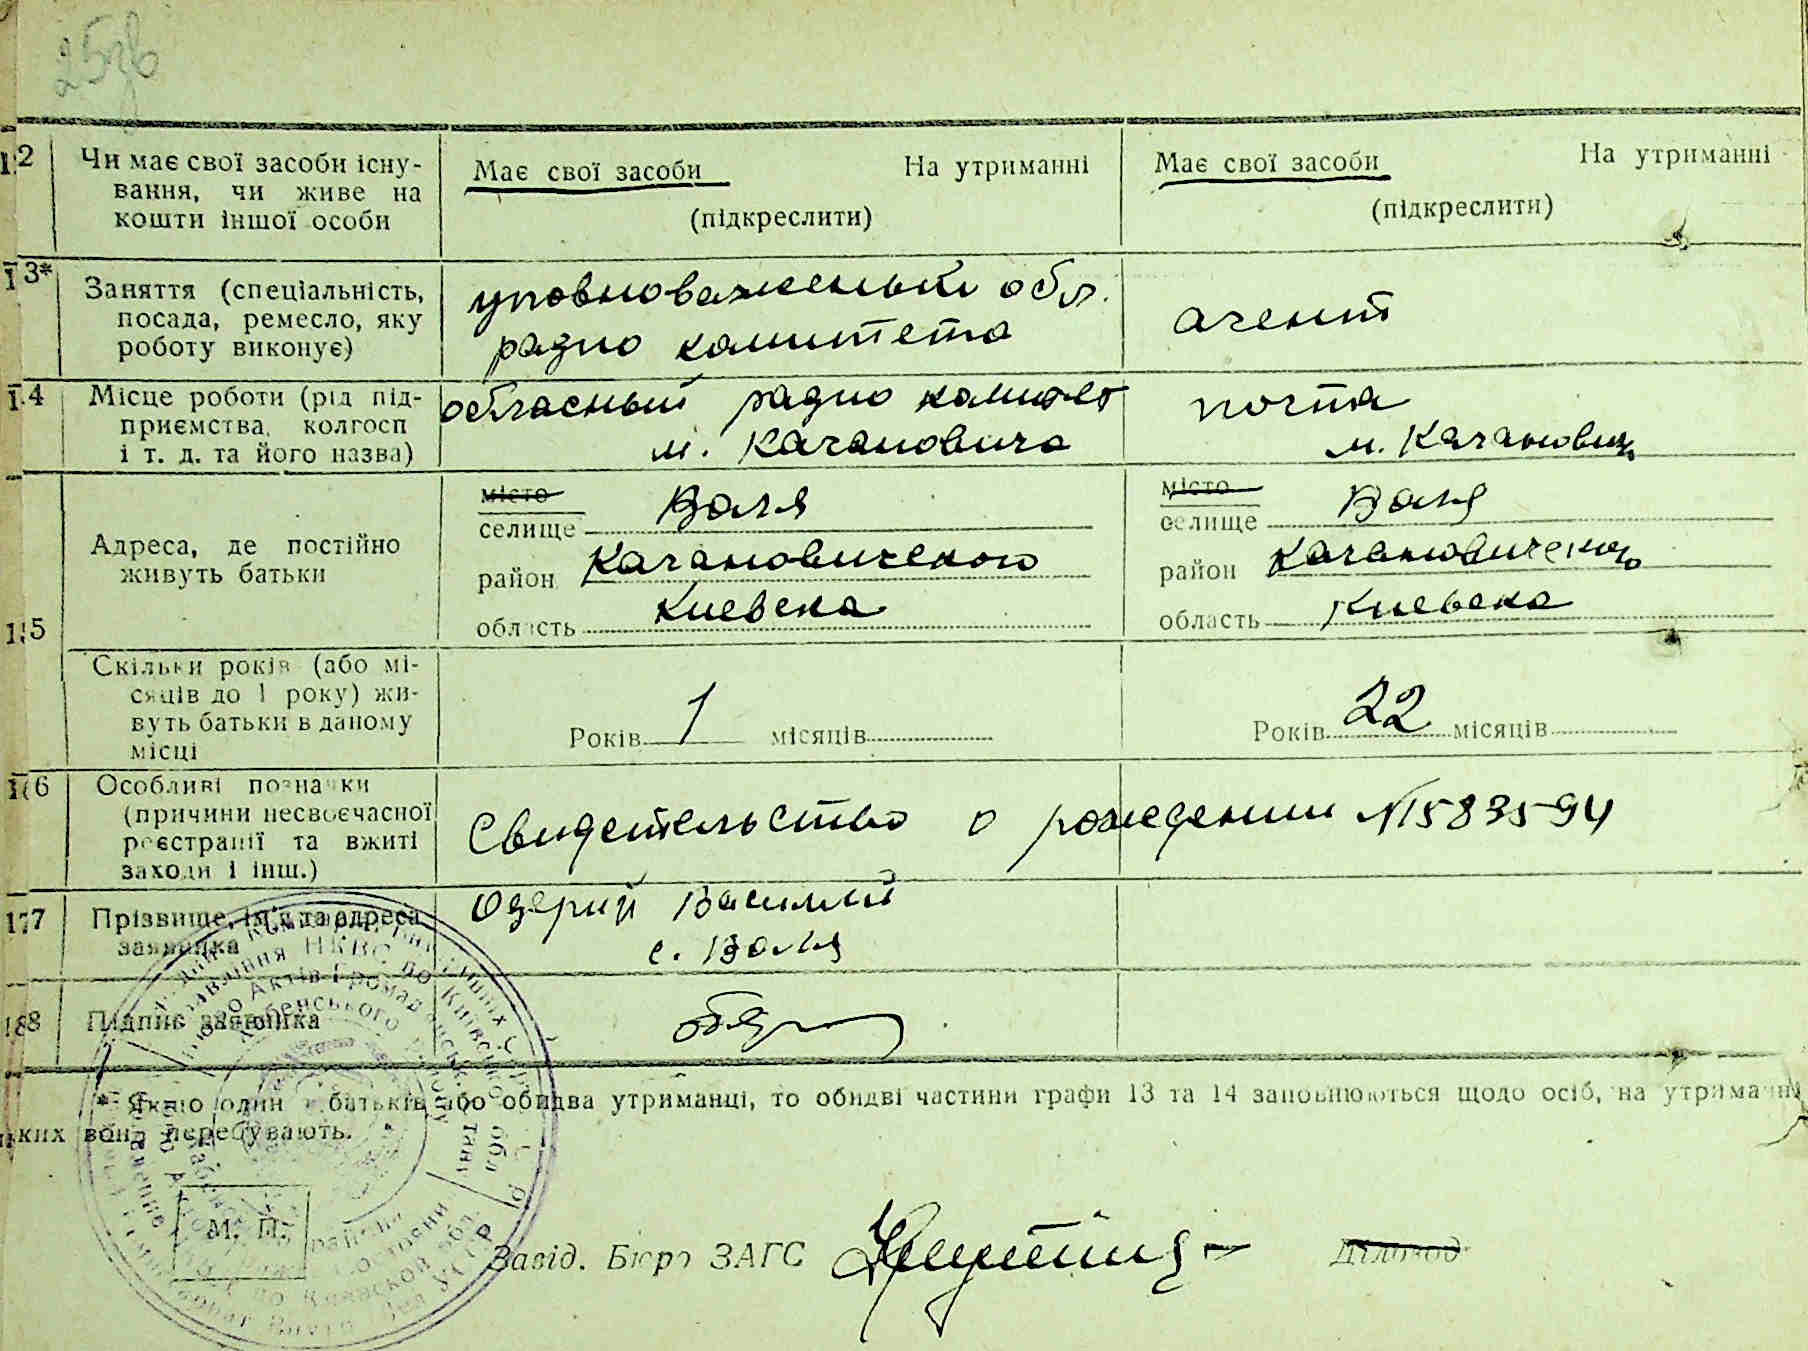 12 Чи має свої засоби існу-
вання, чи живе на
кошти іншої особи
Має свої засоби На утриманні
(підкреслити)
Має свої засоби На утриманні
(підкреслити)
13* Заняття (спеціальність,
посада, ремесло, яку
роботу виконує)
уповноваженный обл.
радио комитета
агент
14 Місце роботи (рід під-
приємства, колгосп
і т. д. та його назва)
областный радио комитет
м. Кагановича
почта
м. Каганович
15 Адреса, де постійно
живуть батьки
місто
селище Воля
район Кагановического
область Киевска
місто
селище Воля
район Кагановического
область Киевска
Скільки років (або мі-
сяців до 1 року) жи-
вуть батьки в даному
місці
Років 1 місяців
Років 22 місяців
16 Особливі позначки
(причини несвоєчасної
реєстрації та вжиті
заходи і інш.)
Свидетельство о рождении №1583594
17 Прізвище, ім'я та адреса
заявника
Озерий Василий
с. Воля
18 Підпис заявника
* Якщо один з батьків або обидва утриманці, то обидві частини графи 13 та 14 заповнюються щодо осіб, на утриманні
яких вони перебувають.
М. П.
Завід. Бюро ЗАГС
Діловод